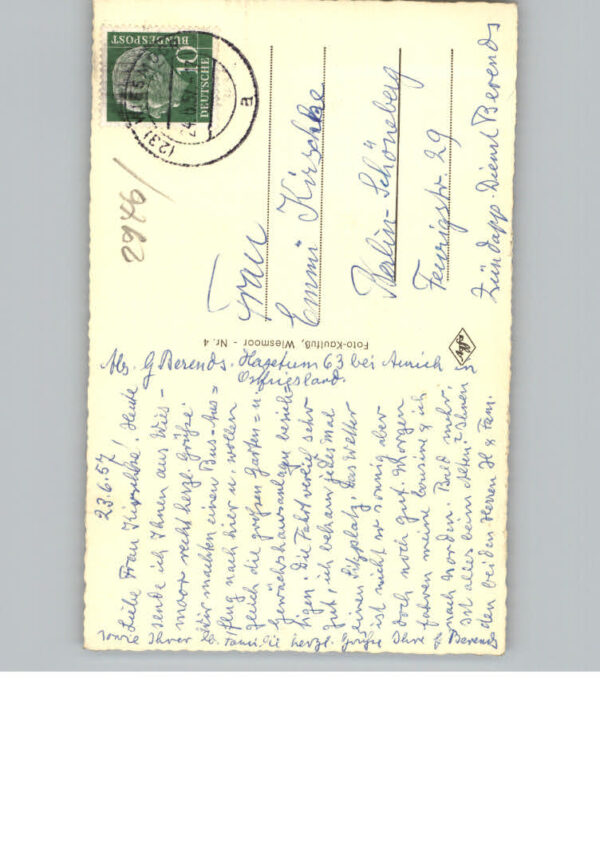 23.6.57
Liebe Frau Kirschke! Heute
sende ich Ihnen aus Wies-
moor recht herzl. Grüße.
Wir machten einen Bus-Aus=
flug nach hier u. wollen
gleich die großen Garten= u.
Gewächshausanlagen besich=
tigen. Die Fahrt verlief sehr
gut, ich bekam jedesmal
einen Sitzplatz, das Wetter
ist nicht so sonnig aber
doch noch gut. Morgen
fahren meine Cousine & ich
nach Norden. Bald mehr,
ist alles beim Alten? Ihnen &
den beiden Herren H & Fam.
sowie Ihrer lb. Familie herzl. Grüße Ihre G Berends
Abs. G Berends. Haxtum 63 bei Aurich
Ostfriesland.
Foto-Kaulfuß, Wiesmoor - Nr. 4
DEUTSCHE
BUNDESPOST
10
(23) WIESMOOR
a
2946/
Frau
Emmi Kirschke
Berlin-Schöneberg
Feurigstr. 29
Zündapp-Dienst Berends